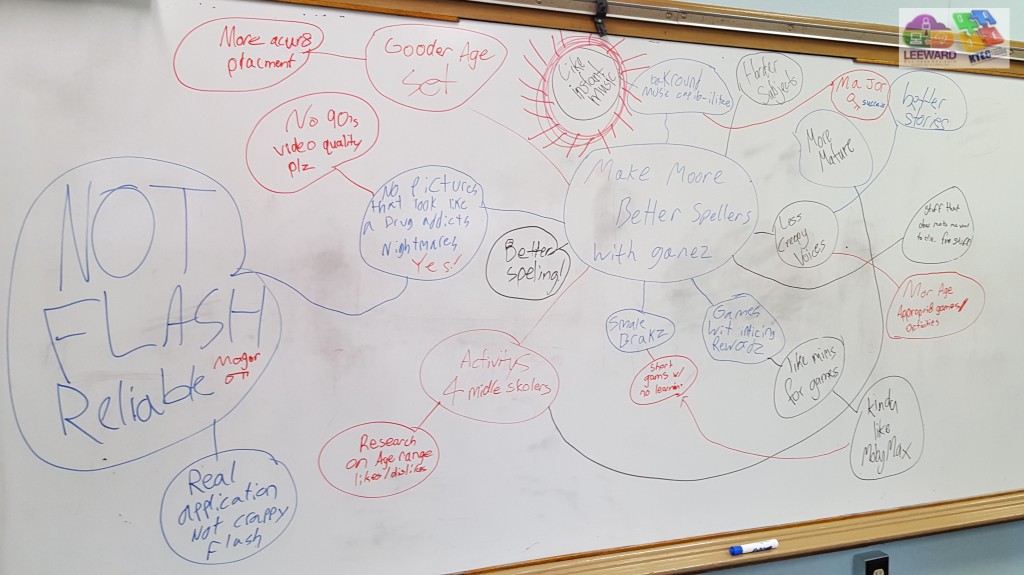 More acur8
placment
Gooder Age
Set
Like
instant
music
bakround
music
Harder
Subjects
Major
success
better
stories
LEEWARD
No 90is
video quality
plz
More
Mature
Make Moore
Better Spellers
with gamez
NOT
FLASH
Reliable
Mager
No pictures
that look like
a Drug addicts
Nightmares
Yes!
Better
speling!
Less
Creepy
Voices
Stuff that
Mor Age
Appropriit games/
activities
Smale
Brakz
Games
Wit inticing
Rewardz
Time mins
for games
short
gams w/
no learning
Activitys
4 midle skolers
Kinda
like
MobyMax
Research
on Age range
likes/dislikes
Real
application
Not crappy
Flash